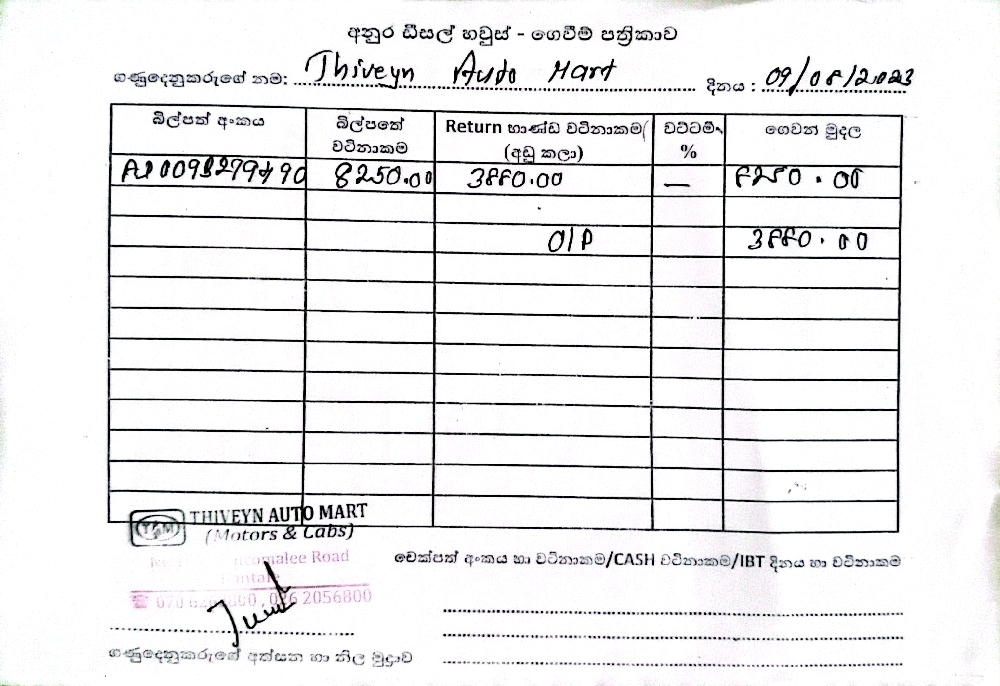 අනුර ඩීසල් හවුස් - ගෙවීම් පත්‍රිකාව
ගණුදෙනුකරුගේ නම: Thiveyn Auto Mart දිනය : 09/08/2023
බිල්පත් අංකය බිල්පතේ වටිනාකම Return භාණ්ඩ වටිනාකම (අඩු කලා) වට්ටම් % ගෙවන මුදල
8250.00 3880.00 — 8250.00
O/P 3880.00
THIVEYN AUTO MART
(Motors & Cabs)
Road
2056800
චෙක්පත් අංකය හා වටිනාකම/CASH වටිනාකම/IBT දිනය හා වටිනාකම
ගණුදෙනුකරුගේ අත්සන හා නිල මුද්‍රාව